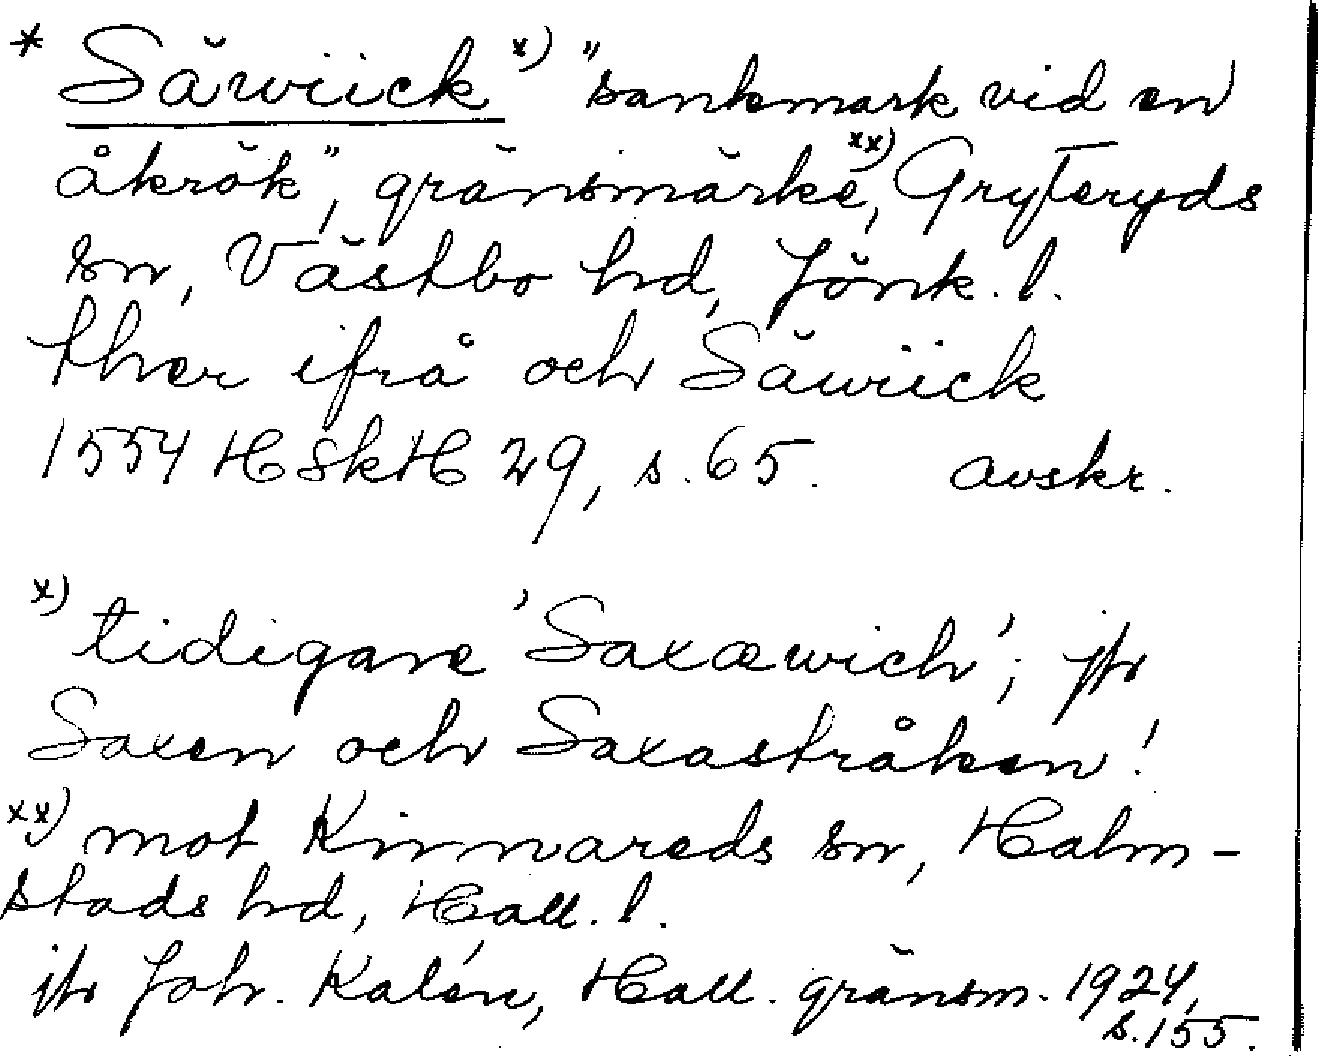 * Säwiick x) "sankmark vid en
åkrök", gränsmärke, xx) Gryteryds
sn, Västbo hd, Jönk. l.
ther ifrå och Säwiick
1554 HSkH 29, s. 65. avskr.
x) tidigare 'Saxæwich'; jfr
Saxen och Saxastråken!
xx) mot Kinnareds sn, Halm-
stads hd, Hall. l.
jfr Joh. Kalén, Hall. gränsm. 1924,
s. 155.